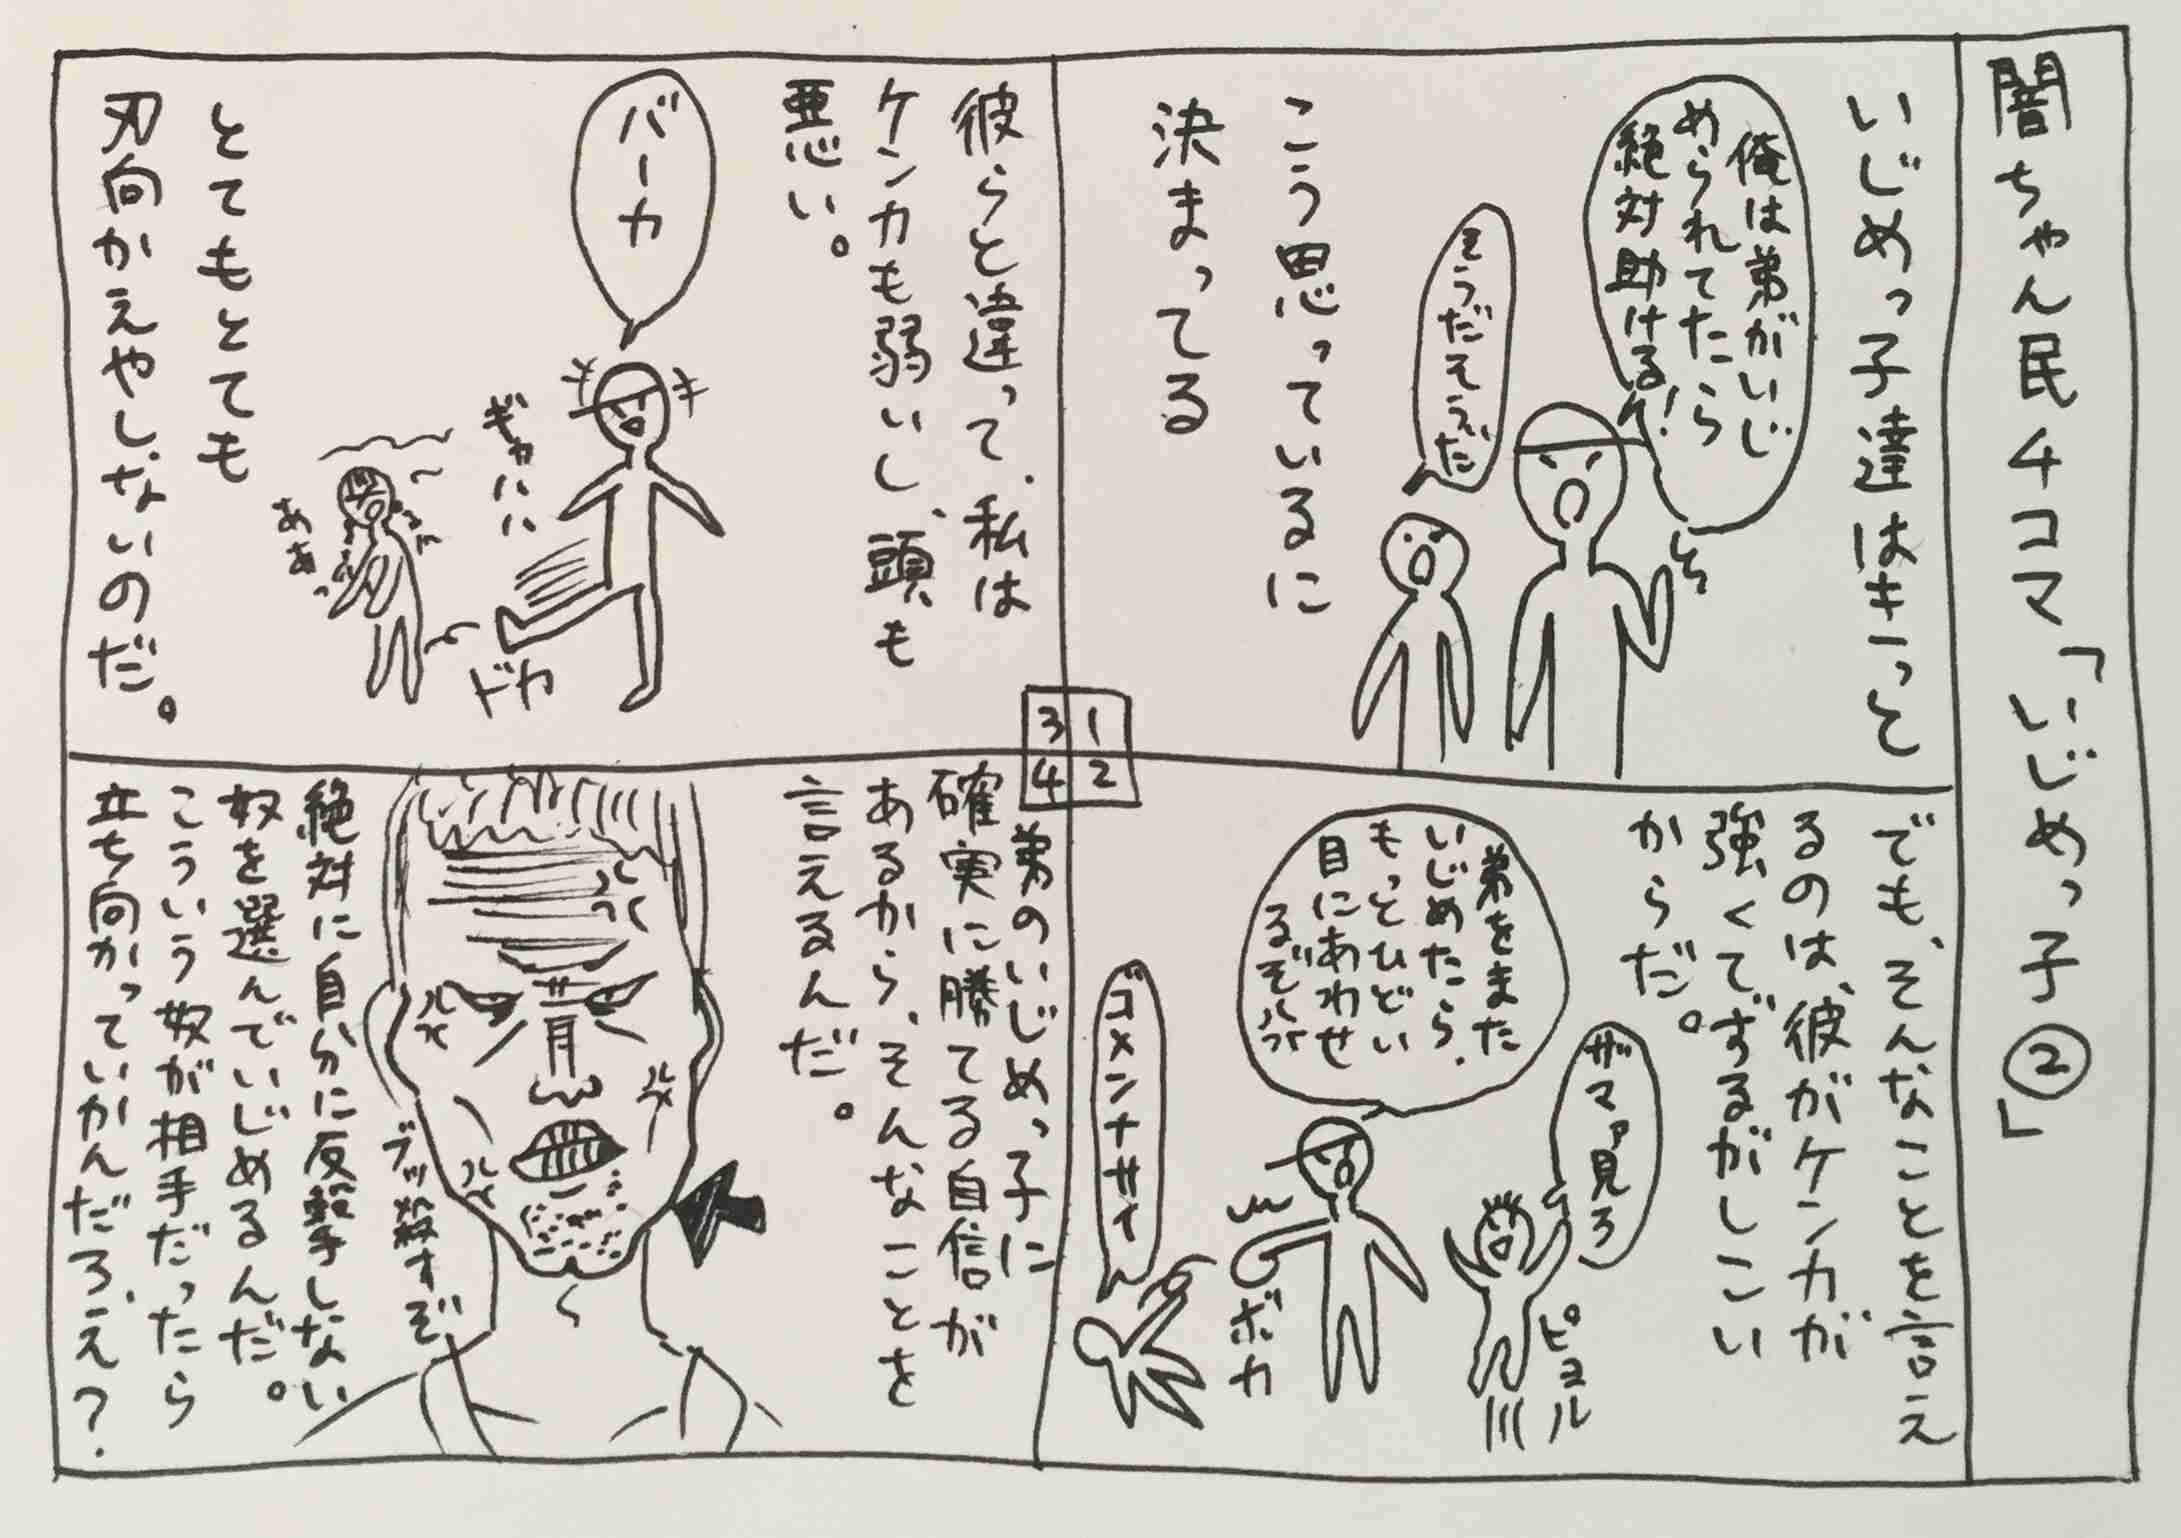 闇ちゃん民4コマ「いじめっ子②」
いじめっ子達はきっと
俺は弟がいじ
められてたら
絶対助ける!
そうだそうだ
こう思っているに
決まってる
1
2
3
4
でも、そんなことを言え
るのは、彼がケンカが
強くてずるがしこい
からだ。
ザマァ見ろ
ピョル
弟をまた
いじめたら、
もっとひどい
目にあわせ
るぞ
ボカ
ゴメンナサイ
彼らと違って、私は
ケンカも弱いし、頭も
悪い。
バーカ
ギャハハ
ドカ
ああっ
とてもとても
刃向かえやしないのだ。
弟のいじめっ子に
確実に勝てる自信が
あるから、そんなことを
言えるんだ。
ブッ殺すぞ
絶対に自分に反撃しない
奴を選んでいじめるんだ。
こういう奴が相手だったら
立ち向かっていかんだろ、え?